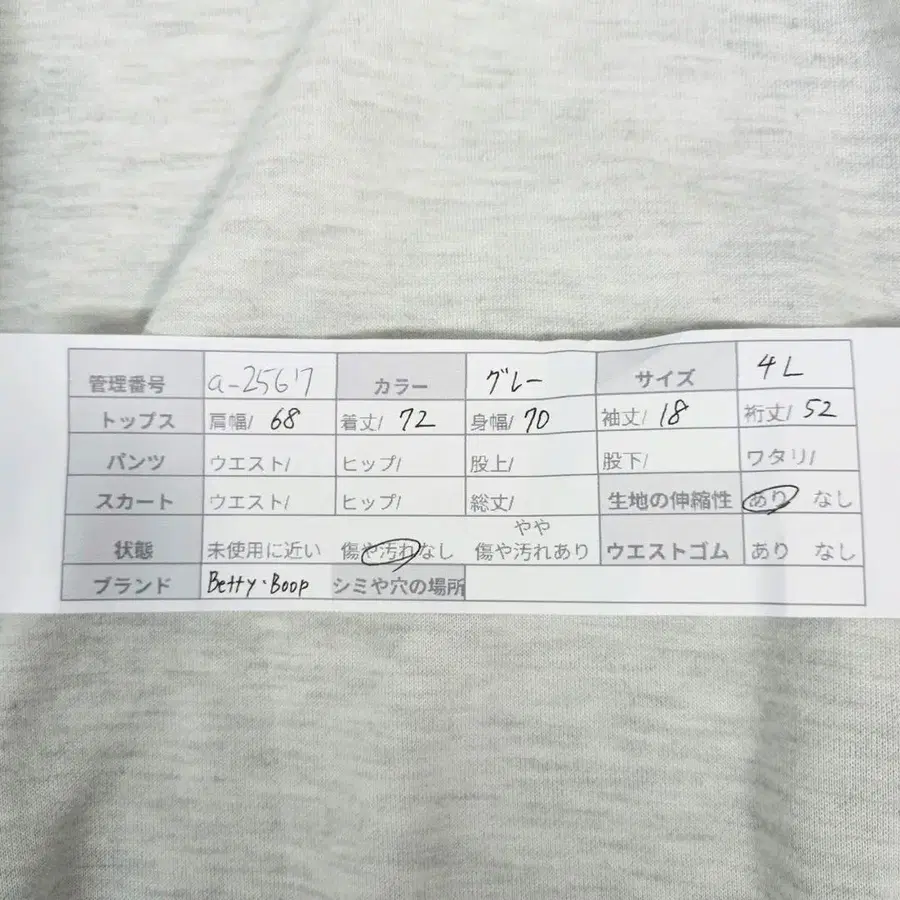 管理番号 a-25617 カラー グレー サイズ 4L
トップス 肩幅/ 68 着丈/ 72 身幅/ 70 袖丈/ 18 裄丈/ 52
パンツ ウエスト/ ヒップ/ 股上/ 股下/ ワタリ/
スカート ウエスト/ ヒップ/ 総丈/ 生地の伸縮性 あり なし
状態 未使用に近い 傷や汚れなし やや傷や汚れあり ウエストゴム あり なし
ブランド Betty・Boop シミや穴の場所